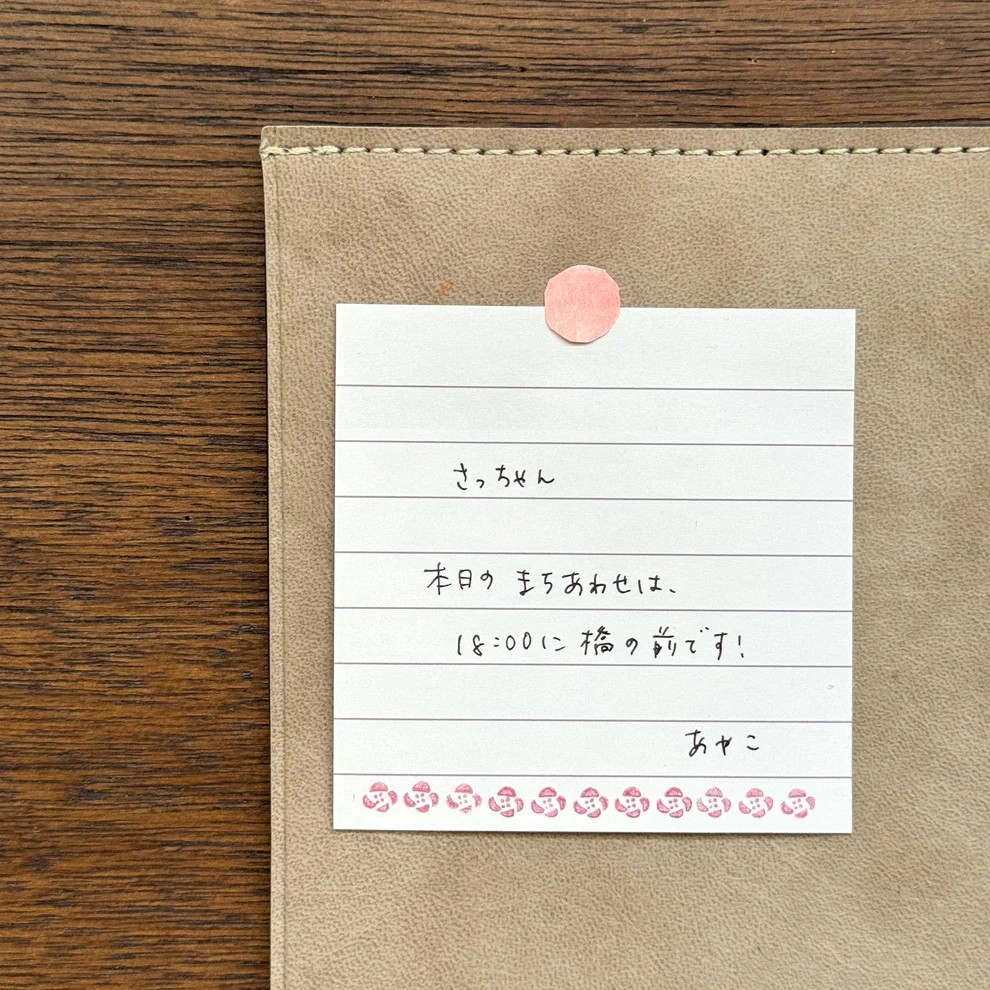 さっちゃん
本日の まちあわせは、
18:00に 橋の前です!
あやこ